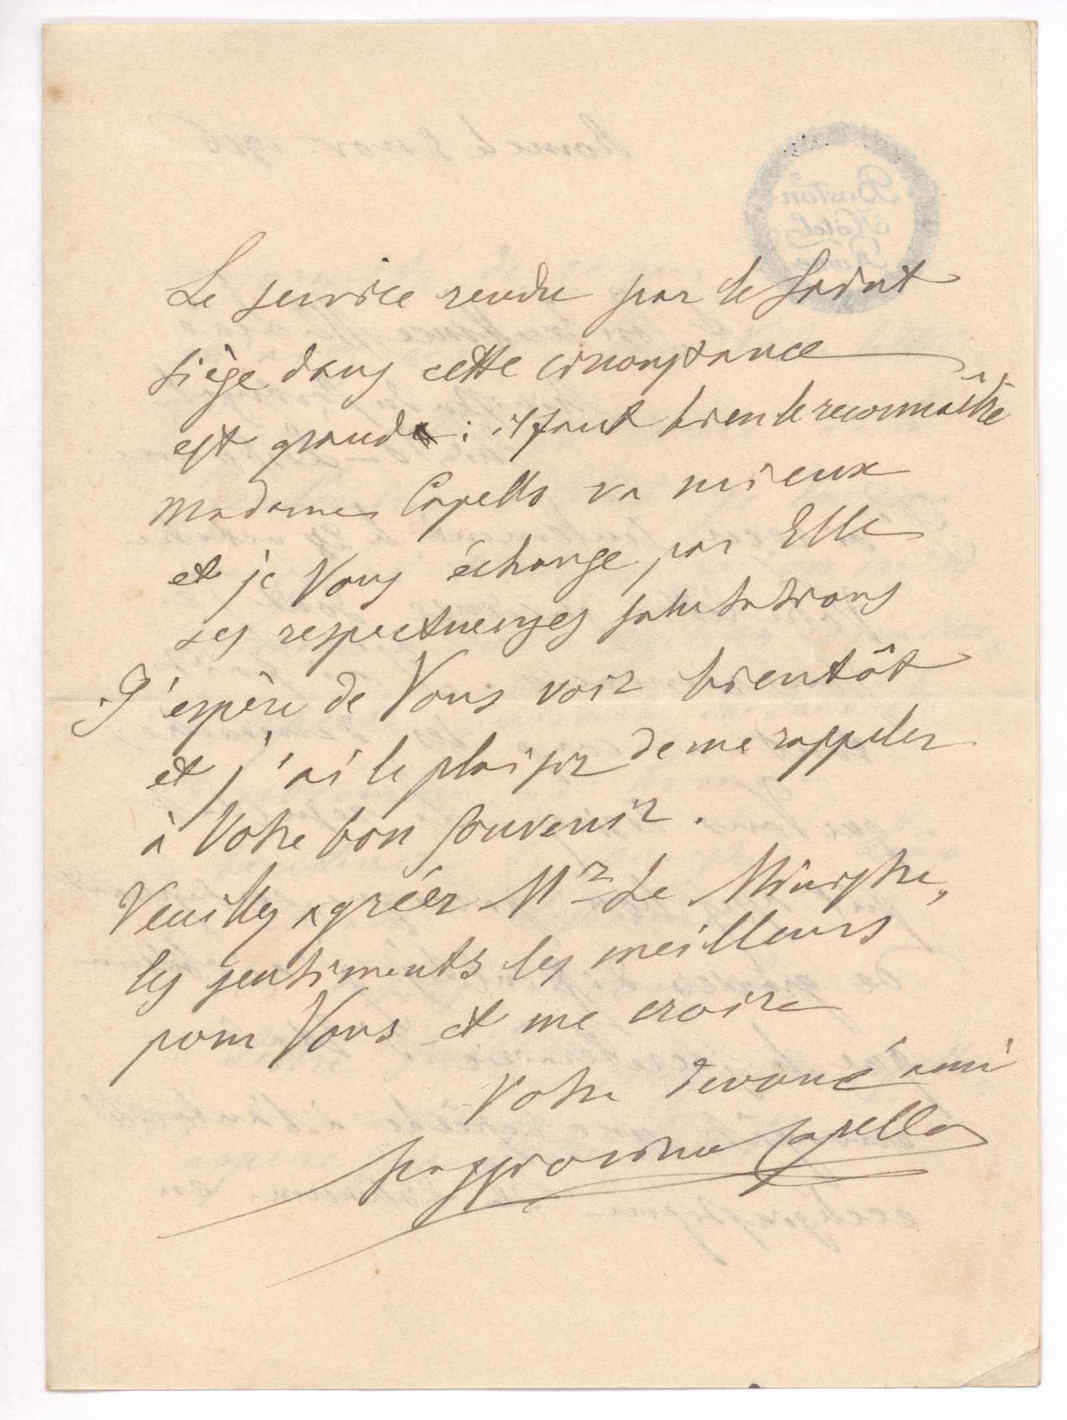 Le service rendu par le Saint
Siège dans cette circonstance
est grand : il faut bien le reconnaître
Madame Capello va mieux
et je Vous échange par Elle
ses respectueuses salutations
J'espère de Vous voir bientôt
et j'ai le plaisir de me rappeler
à Votre bon souvenir.
Veuillez agréer Mr Le Ministre,
les sentiments les meilleurs
pour Vous et me croire
Votre devoué ami
Capello
Rome le 8 nov. 1906
Boston
Hôtel
Rome